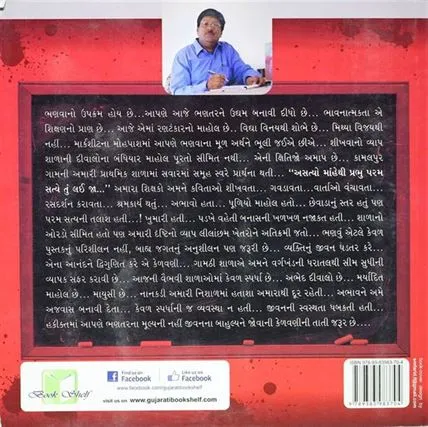 ભણવાનો ઉપક્રમ હોય છે... આપણે આજે ભણતરને ઉદ્યમ બનાવી દીધો છે... ભાવનાત્મકતા એ
શિક્ષણનો પ્રાણ છે... આજે એમાં રણટંકારનો માહોલ છે... વિદ્યા વિનયથી શોભે છે... મિથ્યા વિજયથી
નહીં... માર્કશીટના મોહપાશમાં આપણે ભણવાના મૂળ અર્થને ભૂલી જઈએ છીએ... શીખવાનો વ્યાપ
શાળાની દીવાલોના બંધિયાર માહોલ પૂરતો સીમિત નથી... એની ક્ષિતિજો અમાપ છે... કામલપુર
ગામની અમારી પ્રાથમિક શાળામાં સવારમાં સમૂહ સ્વરે પ્રાર્થના થતી... "અસત્યો માંહેથી પ્રભુ પરમ
સત્યે તું લઈ જા..." અમારા શિક્ષકો અમને કવિતાઓ શીખવતા... ગવડાવતા... વાર્તાઓ વંચાવતા...
રસદર્શન કરાવતા... શ્રમકાર્ય થતું... અભાવો હતા... ધૂળિયો માહોલ હતો... છેવાડાનું સ્તર હતું પણ
પરમ સત્યની તલાશ હતી...! ખુમારી હતી... પડખે વહેતી બનાસની ખળખળ નજાકત હતી... શાળાનો
ઓરડો સીમિત હતો પણ અમારી દૃષ્ટિનો વ્યાપ લીલાંછમ ખેતરોને અતિક્રમી જતો... ભણવું એટલે કેવળ
પુસ્તકનું પરિશીલન નહીં, બાહ્ય જગતનું અનુશીલન પણ જરૂરી છે... વ્યક્તિનું જીવન ઘડતર કરે...
એના આનંદને દ્વિગુણિત કરે એ કેળવણી... ગામઠી શાળાએ અમને વર્ગખંડની ધરાતલથી સીમ સુધીની
વ્યાપક સફર કરાવી છે... આજની વૈભવી શાળાઓમાં કેવળ સ્પર્ધા છે... અભેદ દીવાલો છે... મર્યાદિત
માહોલ છે... માયુસી છે... નાનકડી અમારી નિશાળમાં હતાશા અમારાથી દૂર રહેતી... અભાવને અમે
અજવાસ બનાવી દેતા... કેવળ સ્પર્ધાની જ વ્યવસ્થા ન હતી... જીવનની સ્વસ્થતા ધબકતી હતી...
હકીકતમાં આપણે ભણતરના મૂલ્યની નહીં જીવનના બાહુલ્યને જોવાની કેળવણીની તાતી જરૂર છે....
Book Shelf
Find us on
Facebook
Like us on
Facebook
www.facebook.com/gujaratibookshelf
visit us on www.gujaratibookshelf.com
ISBN 978-93-83983-70-4
9 789383 983704